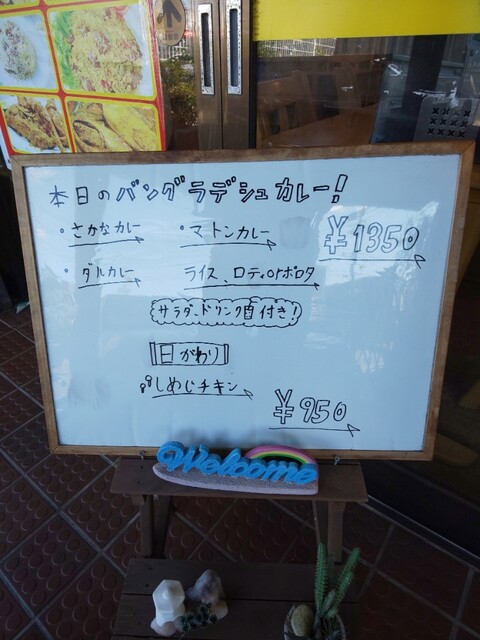 本日のバングラデシュカレー!
・さかなカレー ・マトンカレー ¥1350
・ダルカレー ライス、ロティorポロタ
サラダ、ドリンク付き!
日がわり
しめじチキン
¥950
Welcome